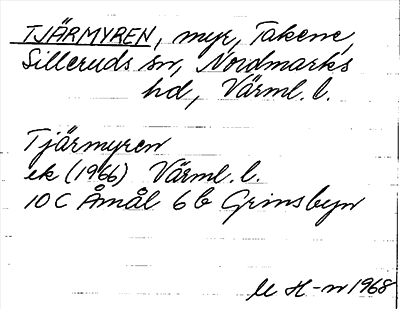 TJÄRMYREN, myr, Takene,
Silleruds sn, Nordmarks
hd, Värml. l.
Tjärmyren
ek (1966) Värml. l.
10 C Åmål 6 b Grinsbyn
M H-n 1968